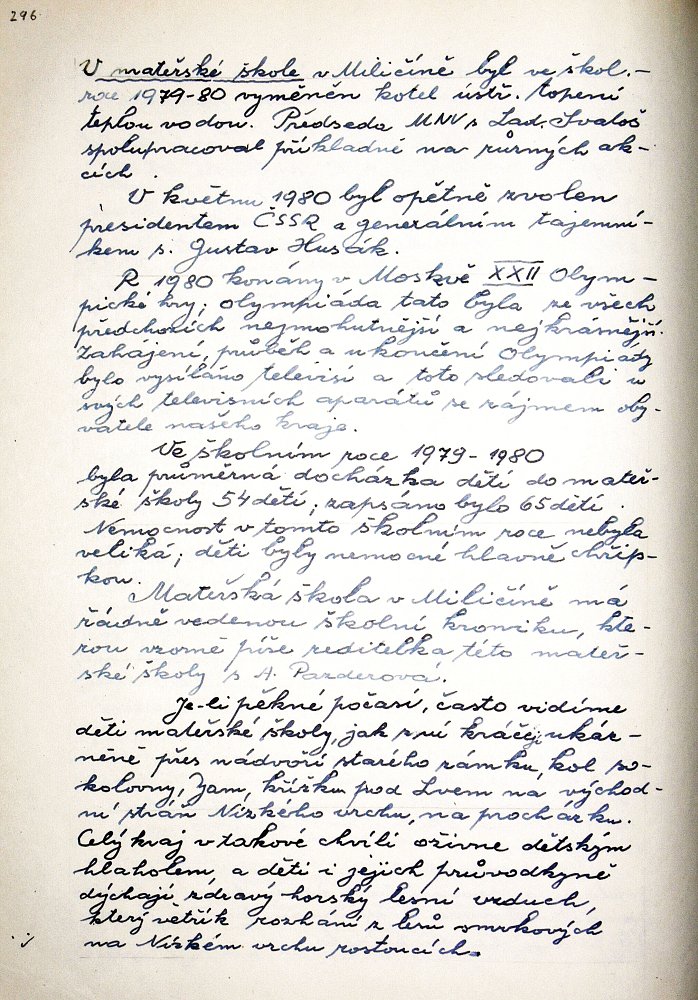 296
V mateřské škole v Miličíně byl ve škol.-
roce 1979-80 vyměněn kotel ústř. topení
teplou vodou. Předseda MNV s Lad. Svatoš
spolupracoval příkladně na různých ak-
cích.
V květnu 1980 byl opětně zvolen
presidentem ČSSR a generálním tajemní-
kem s. Gustav Husák.
R 1980 konány v Moskvě XXII Olym-
pické hry; olympiáda tato byla ze všech
předchozích nejmohutnější a nejkrásnější.
Zahájení, průběh a ukončení Olympiády
bylo vysíláno televisí a toto sledovali u
svých televisních aparátů se zájmem oby-
vatelé našeho kraje.
Ve školním roce 1979-1980
byla průměrná docházka dětí do mateř-
ské školy 54 dětí; zapsáno bylo 65 dětí.
Nemocnost v tomto školním roce nebyla
veliká; děti byly nemocné hlavně chřip-
kou.
Mateřská škola v Miličíně má
řádně vedenou školní kroniku, kte-
rou vzorně píše ředitelka této mateř-
ské školy s A. Pazderová.
Je-li pěkné počasí, často vidíme
děti mateřské školy, jak z ní kráčejí ukáz-
něně přes nádvoří starého zámku, kol so-
kolovny, křížku pod Lvem na východ-
ní stráň Nízkého vrchu, na procházku.
Celý kraj v takové chvíli oživne dětským
hlaholem, a děti i jejich průvodkyně
dýchají zdravý horský lesní vzduch,
který větřík rozhání z lesů smrkových
na Nízkém vrchu rostoucích.